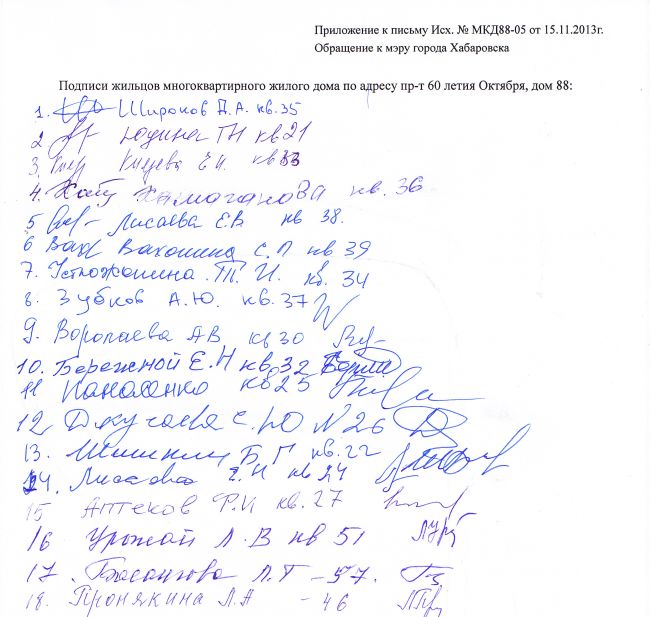 Приложение к письму Исх. № МКД88-05 от 15.11.2013г.
Обращение к мэру города Хабаровска
Подписи жильцов многоквартирного жилого дома по адресу пр-т 60 летия Октября, дом 88:
1. Широков Д.А. кв.35
2 Юдина ГН кв 21
3. Е.И. кв 33
4. Хамаганова кв. 36
5 Лисаева ЕВ кв 38.
6 Вахонина С.П кв 39
7. Т. И. кв. 34
8. Зубков А.Ю. кв.37
9. Воропаева АВ кв 30
10. Бережной Е.Н кв.32
11 Панасенко кв 25
12 Джучаева С.Ю N 26
13. Шишкин Б. Г. кв.22
14. кв 24
15 Аптеков Ф.И кв. 27
16 Урожай Л. В кв 51
17. Басангова Л.Т - 57.
18. Пронякина Л.А - 46